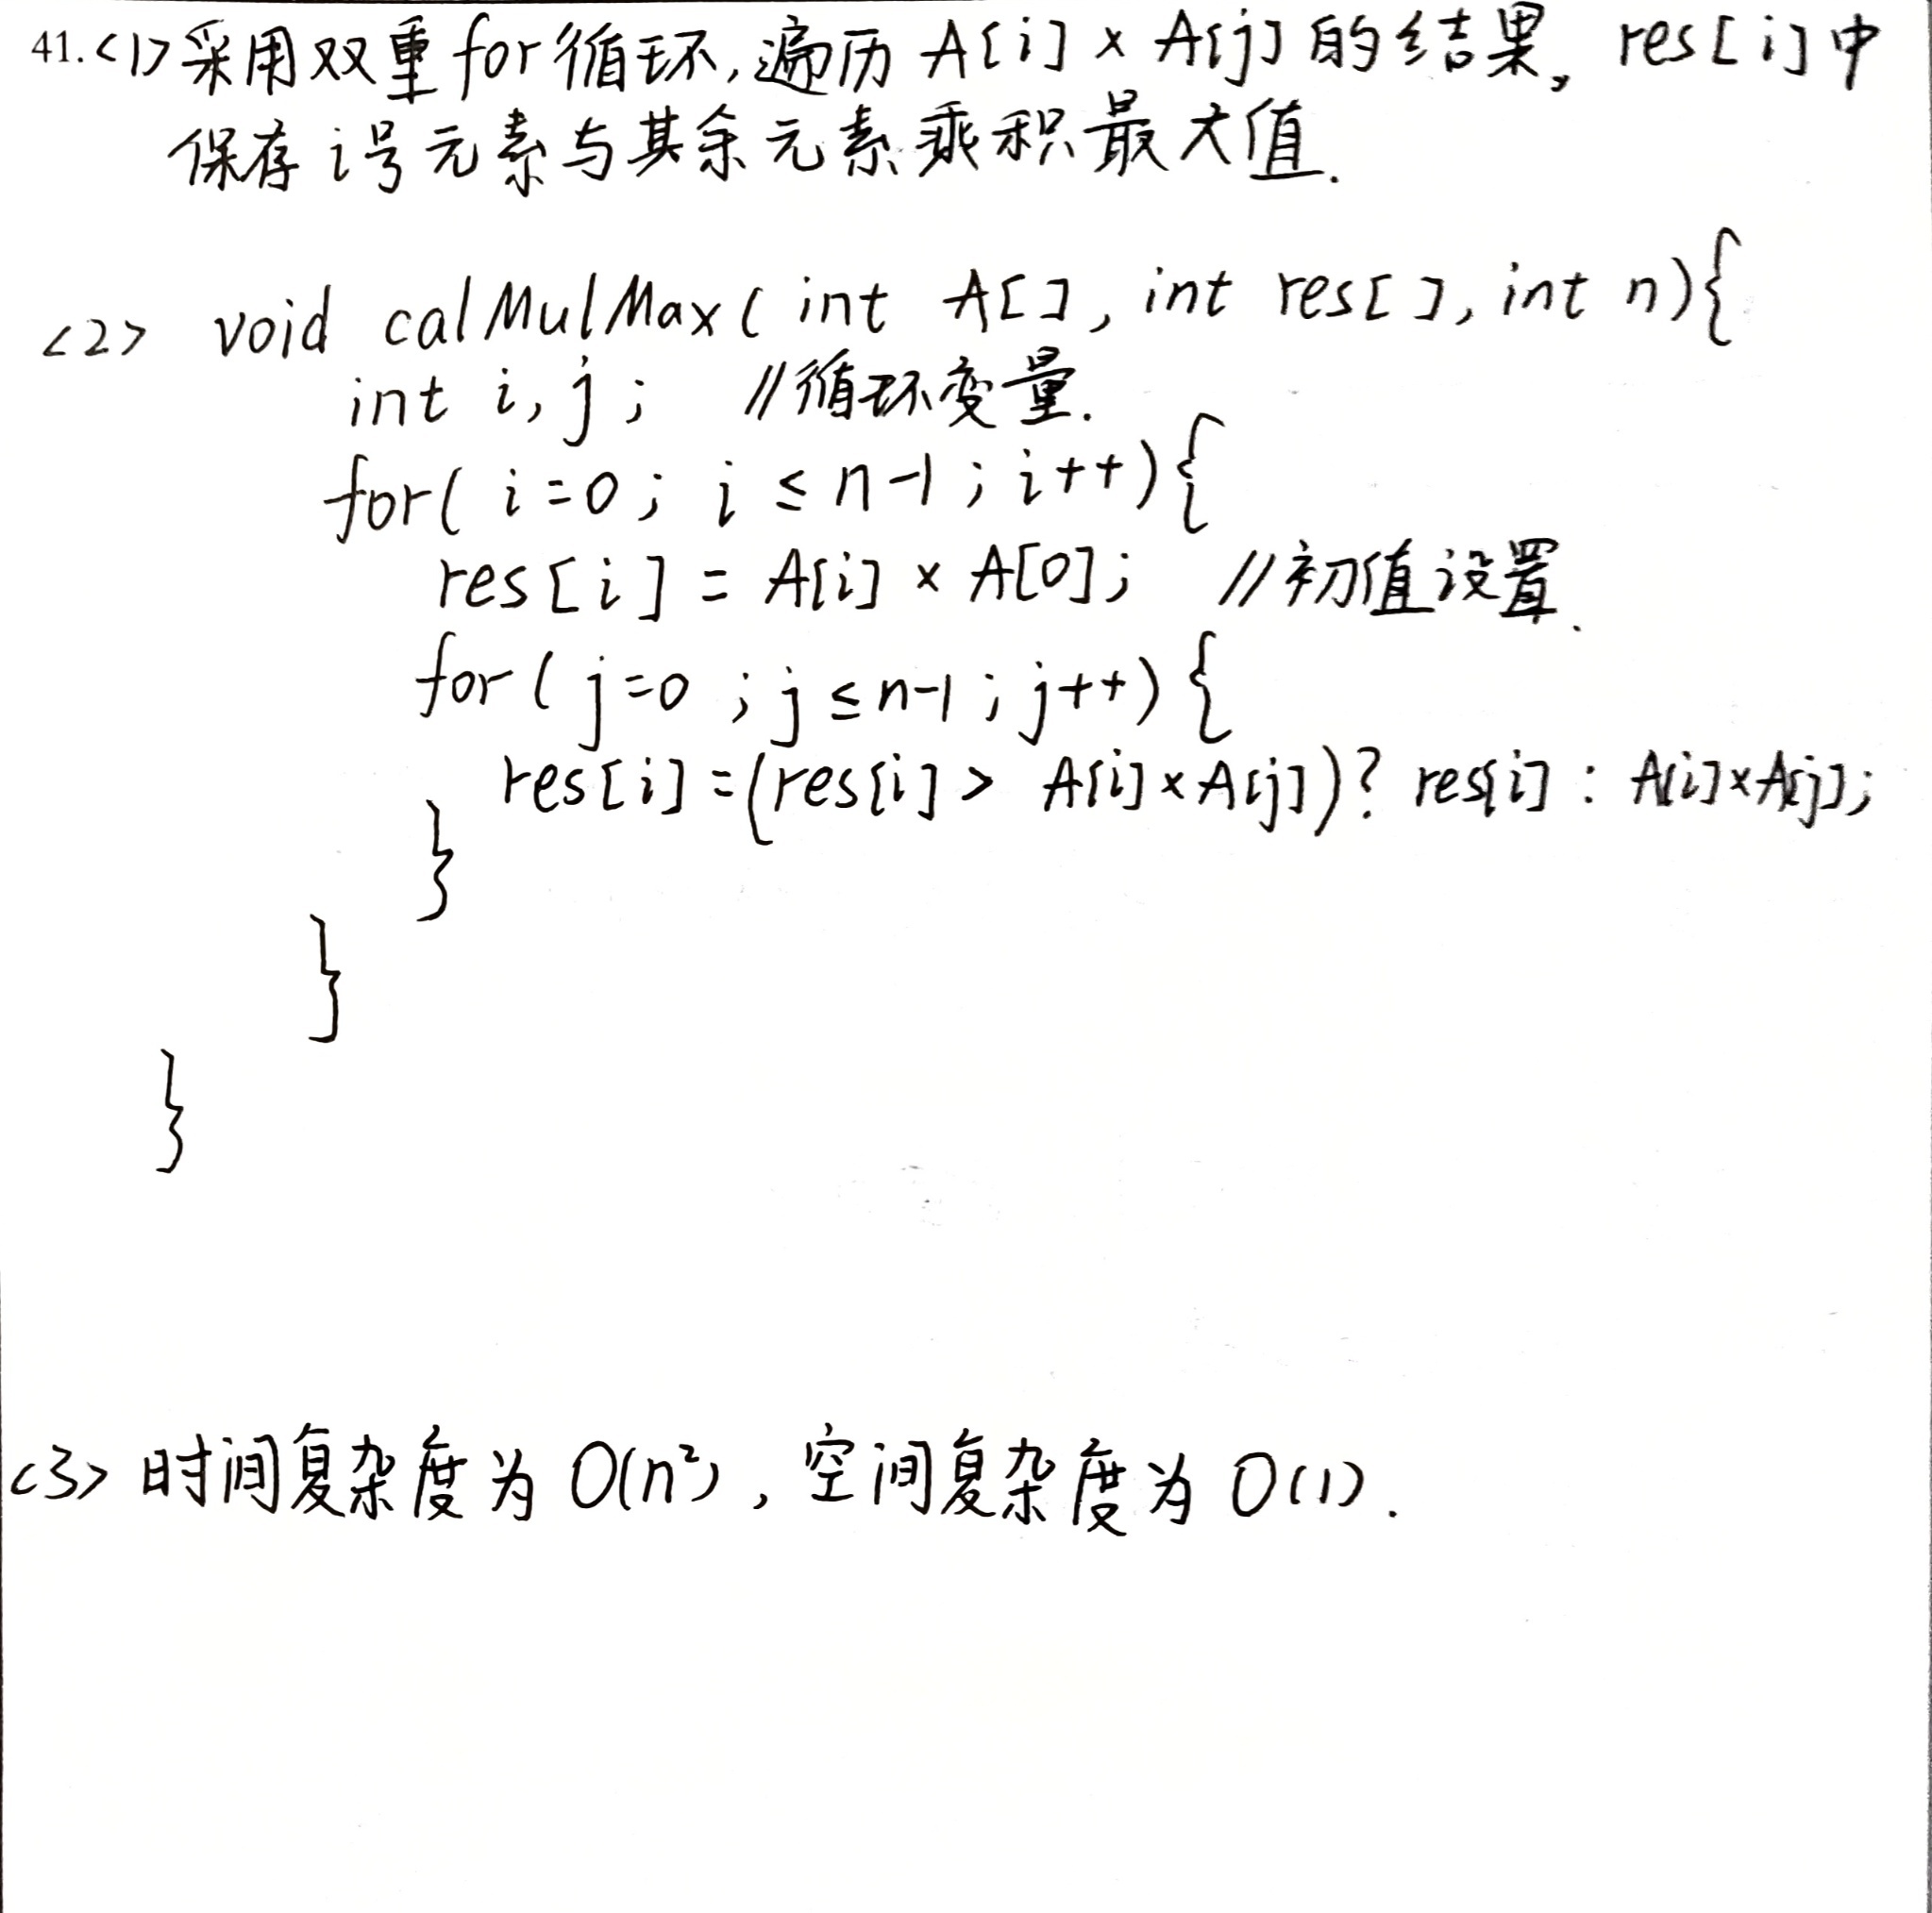 41.<1>采用双重for循环,遍历 A[i] × A[j] 的结果, res[i]中
保存 i号元素与其余元素乘积最大值.
<2> void calMulMax( int A[], int res[], int n){
int i, j; //循环变量.
for( i=0; i ≤ n-1; i++){
res[i] = A[i] × A[0]; //初值设置.
for( j=0 ; j ≤ n-1; j++){
res[i] =(res[i] > A[i]×A[j])? res[i] : A[i]×A[j];
}
}
}
<3> 时间复杂度为 O(n²), 空间复杂度为 O(1).